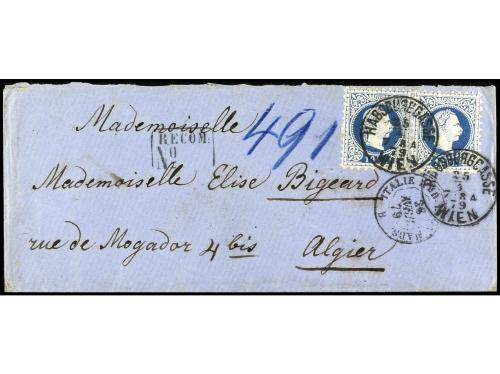 Mademoiselle
RECOM.
No
491
Mademoiselle Elise Bigeard
rue de Mogador 4 bis
Algier
HABSBURGERGASSE
WIEN
HABSBURGERGASSE
WIEN
ITALIE
79